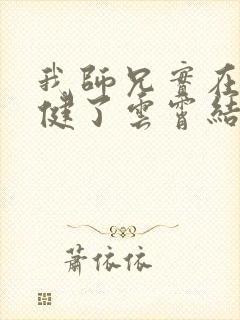 我師兄實在
健了雲霄結
蕭依依